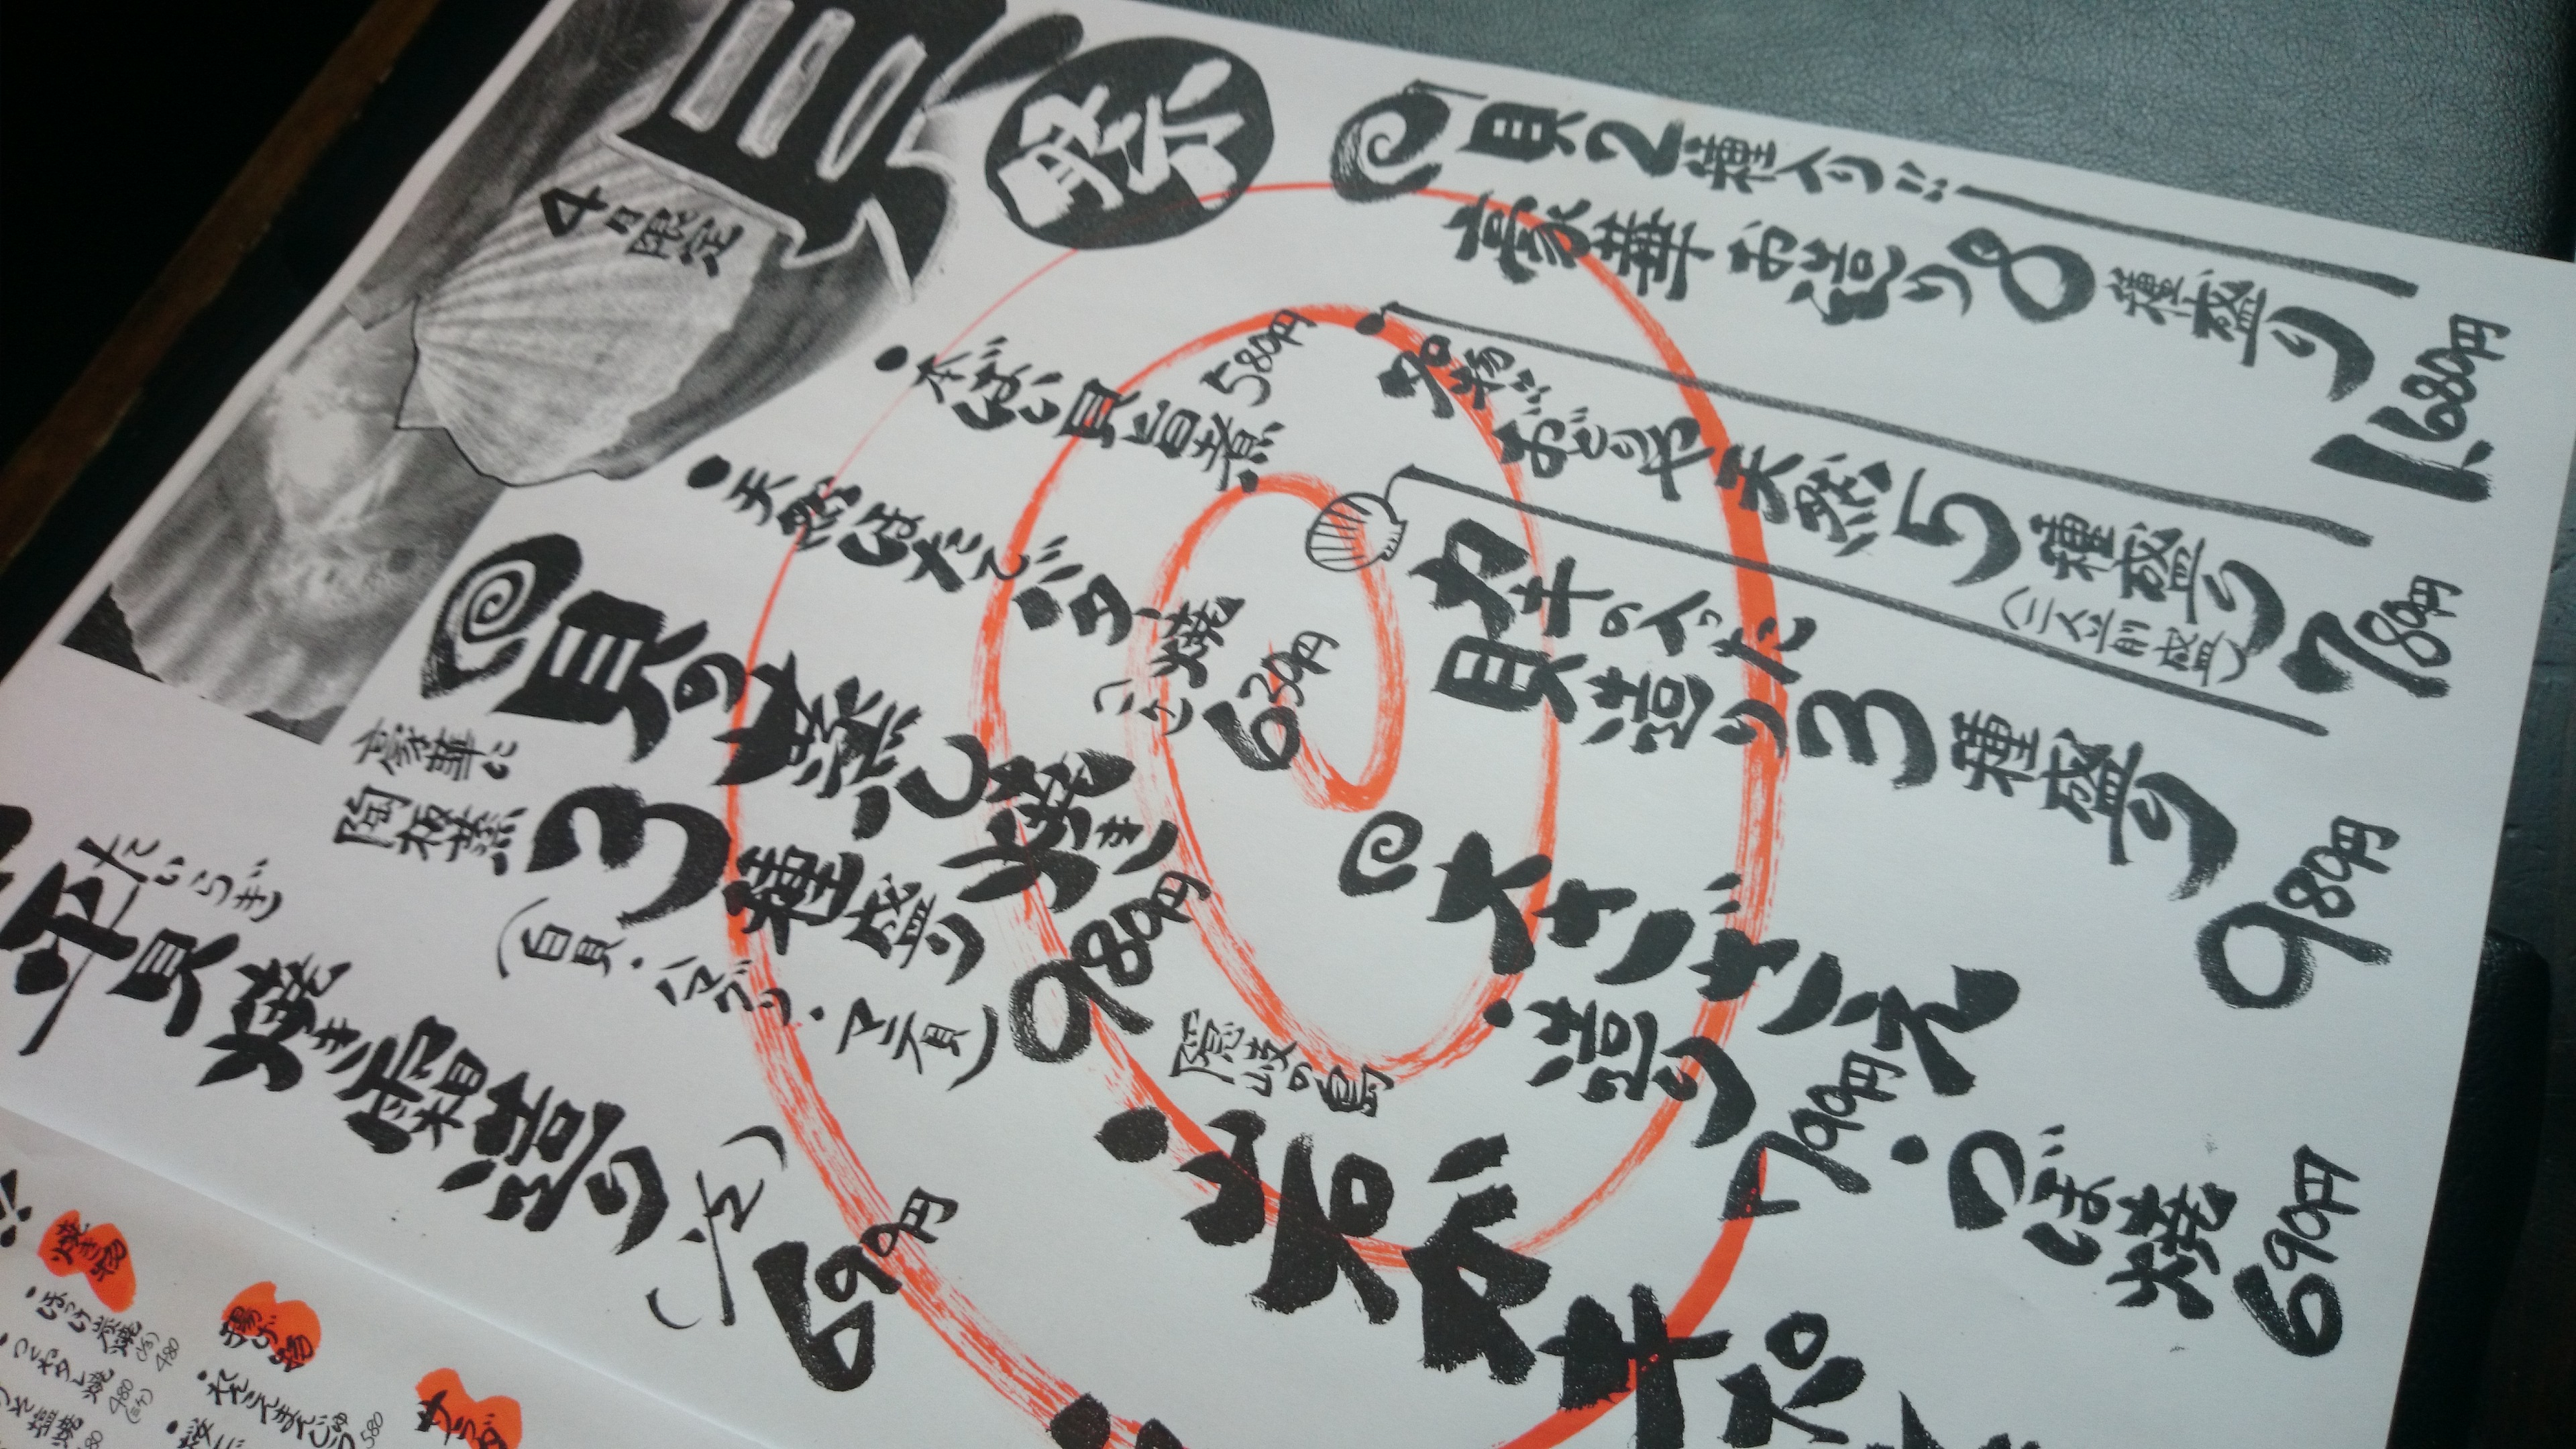 貝
祭
4月限定
貝2種入り!!
豪華お造り8種盛り
1,680円
名物
おどりや天然5種盛り
(一人前盛)
780円
牡キの入った
貝造り3種盛り
980円
大さざえ
・造り
790円
・つぼ焼
690円
・本ばい貝旨煮
580円
・天然ほたてバター焼
(一コ)
630円
貝の葉っぱ焼き
豪華に
陶板蒸
3種盛り
980円
(白貝・ハマグリ・マテ貝)
隠岐の島
岩ガキ
たいらぎ
平貝焼き霜造り
(一コ)
699円
焼き物
・ほっけ炭焼
480
つくねタレ焼
480
揚げ物
580
サラダ